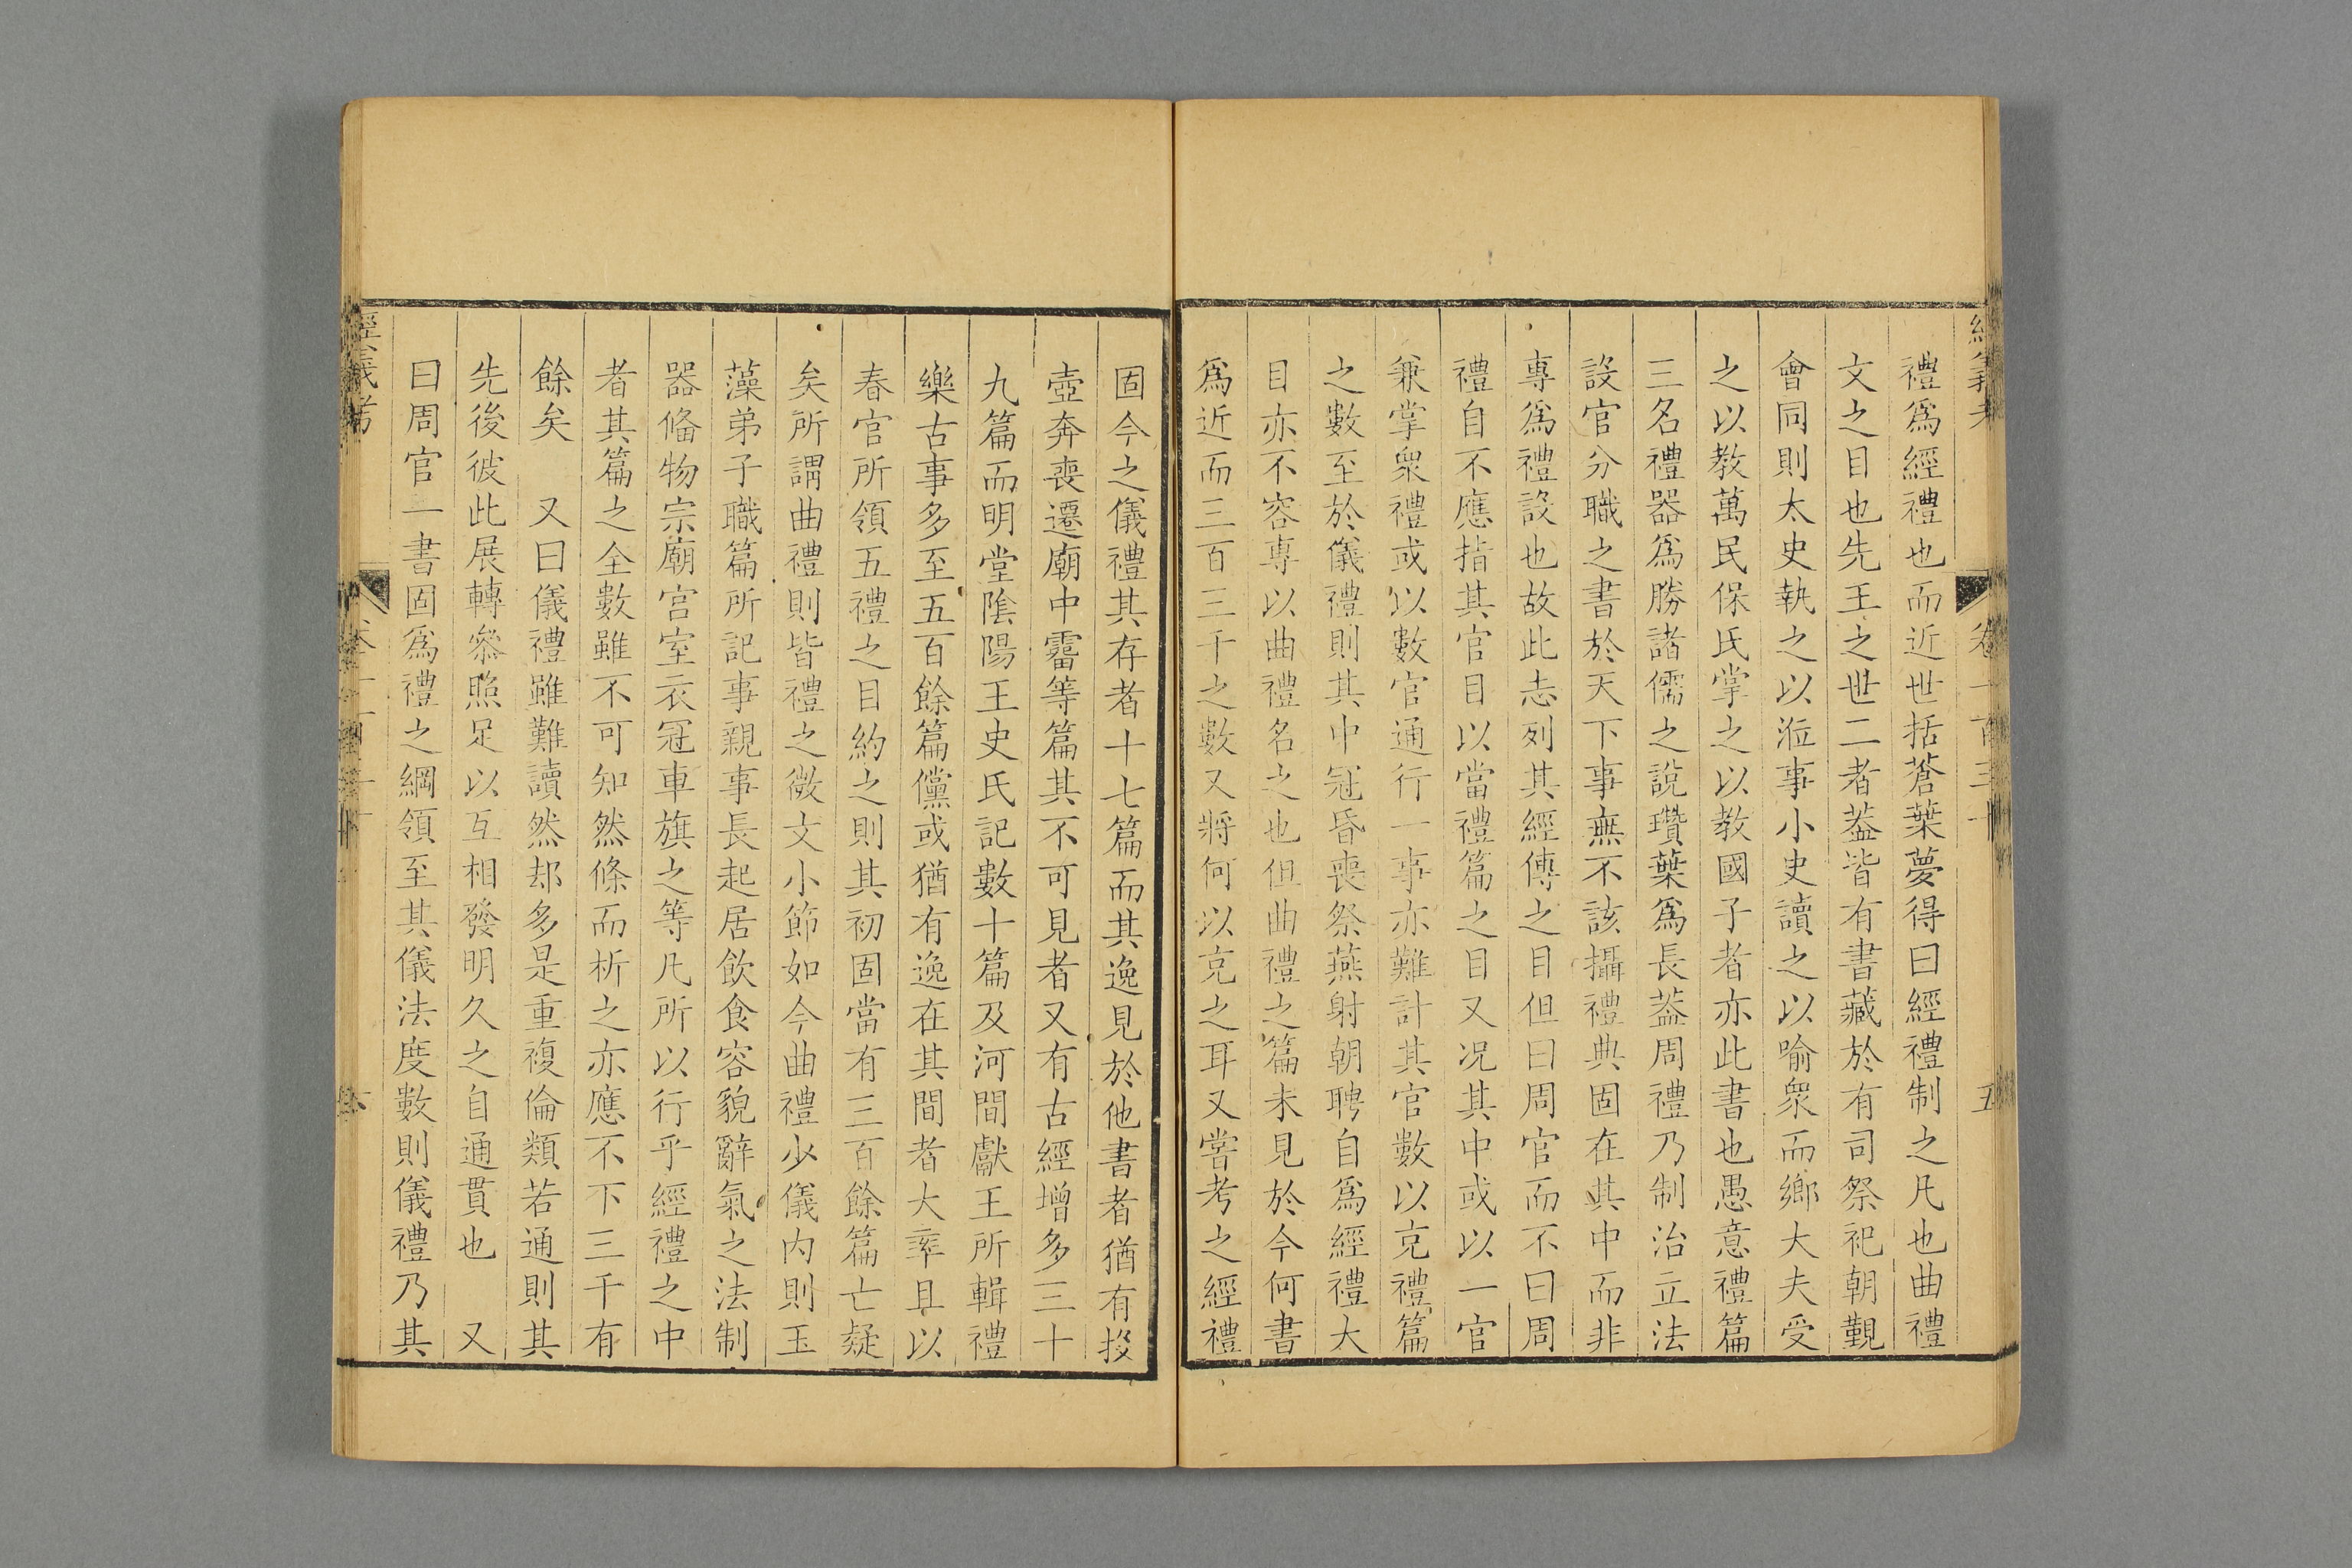 禮爲經禮也而近世括蒼葉夢得曰經禮制之凡也曲禮
文之目也先王之世二者蓋皆有書藏於有司祭祀朝覲
會同則太史執之以涖事小史讀之以喻衆而鄉大夫受
之以教萬民保氏掌之以教國子者亦此書也愚意禮篇
三名禮器爲勝諸儒之說瓚葉爲長蓋周禮乃制治立法
設官分職之書於天下事無不該攝禮典固在其中而非
專爲禮設也故此志列其經傳之目但曰周官而不曰周
禮自不應指其官目以當禮篇之目又况其中或以一官
兼掌衆禮或以數官通行一事亦難計其官數以克禮篇
之數至於儀禮則其中冠昏喪祭燕射朝聘自爲經禮大
目亦不容專以曲禮名之也但曲禮之篇未見於今何書
爲近而三百三千之數又將何以克之耳又嘗考之經禮
固今之儀禮其存者十七篇而其逸見於他書者猶有投
壺奔喪遷廟中霤等篇其不可見者又有古經增多三十
九篇而明堂陰陽王史氏記數十篇及河間獻王所輯禮
樂古事多至五百餘篇儻或猶有逸在其間者大率且以
春官所領五禮之目約之則其初固當有三百餘篇亡疑
矣所謂曲禮則皆禮之微文小節如今曲禮少儀内則玉
藻弟子職篇所記事親事長起居飲食容貌辭氣之法制
器俻物宗廟宫室衣冠車旗之等凡所以行乎經禮之中
者其篇之全數雖不可知然條而析之亦應不下三千有
餘矣　又曰儀禮雖難讀然却多是重複倫類若通則其
先後彼此展轉叅照足以互相發明久之自通貫也　又
曰周官一書固爲禮之綱領至其儀法度數則儀禮乃其